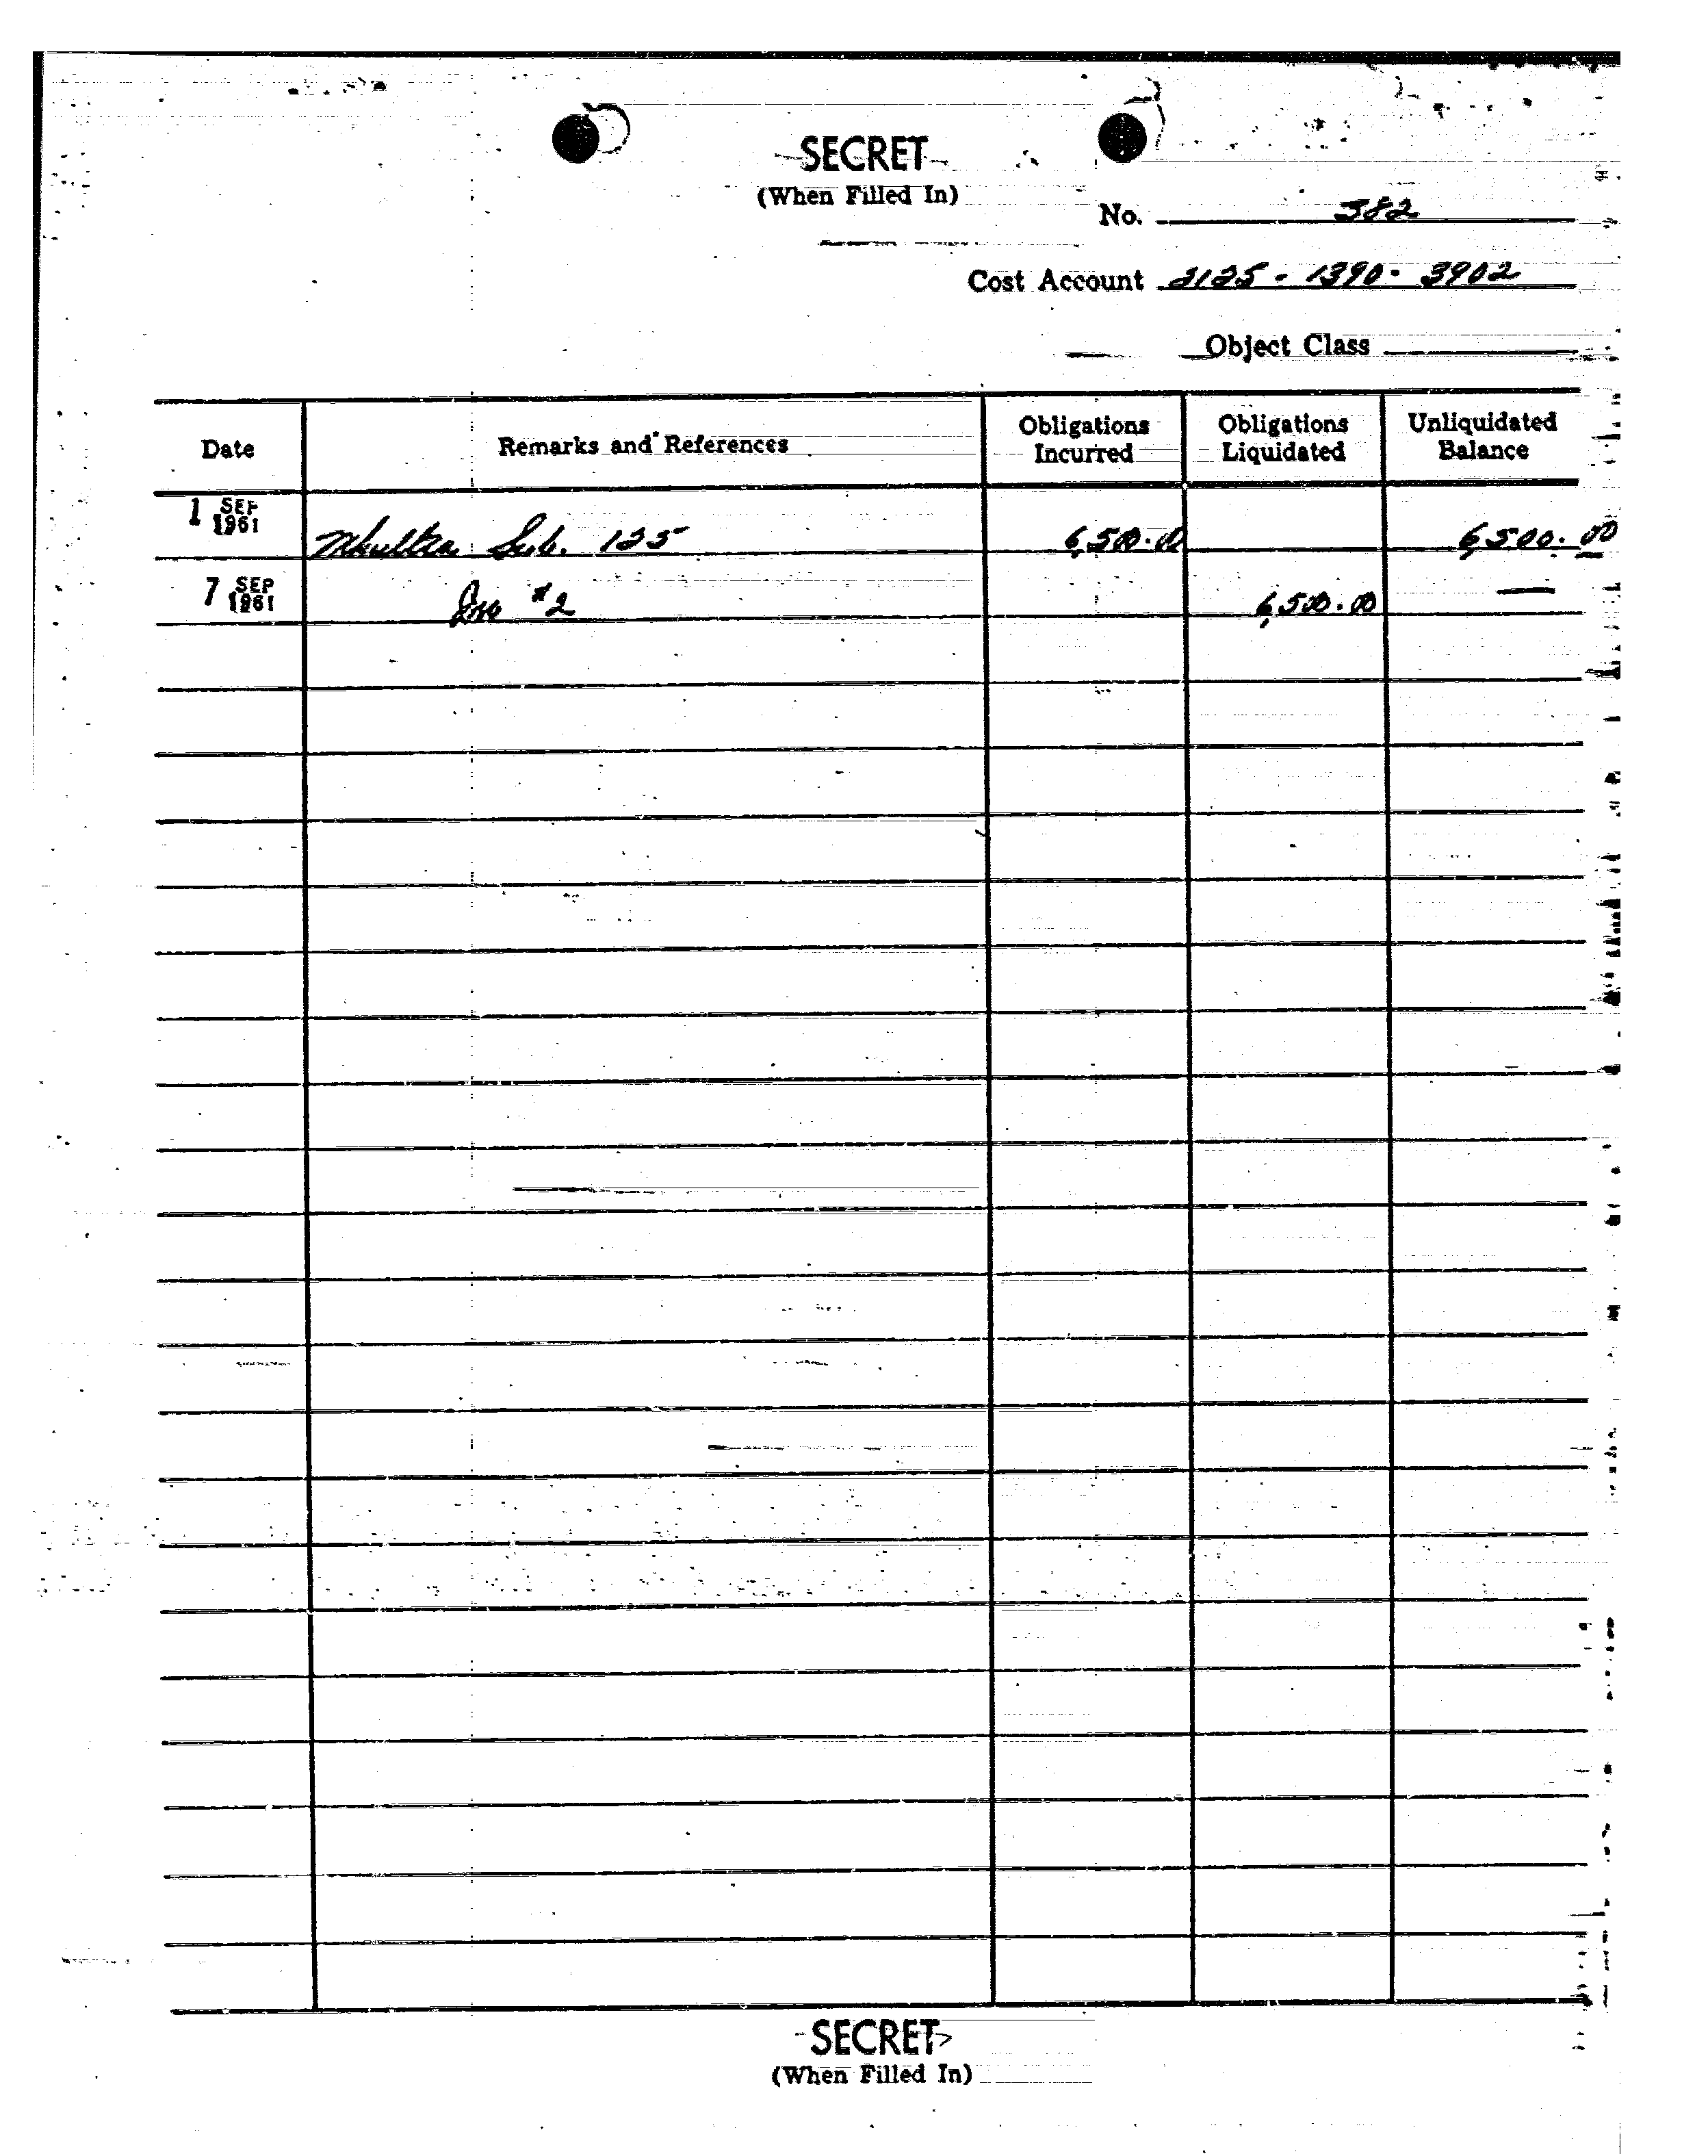 SECRET
(When Filled In)
No. 382
Cost Account 2125 - 1390 - 3902
Object Class
Date Remarks and References Obligations Incurred Obligations Liquidated Unliquidated Balance
1 SEP 1961 Mkultra Sub. 125 6,500.00 6,500.00
7 SEP 1961 Inv #2 6,500.00 —
SECRET
(When Filled In)